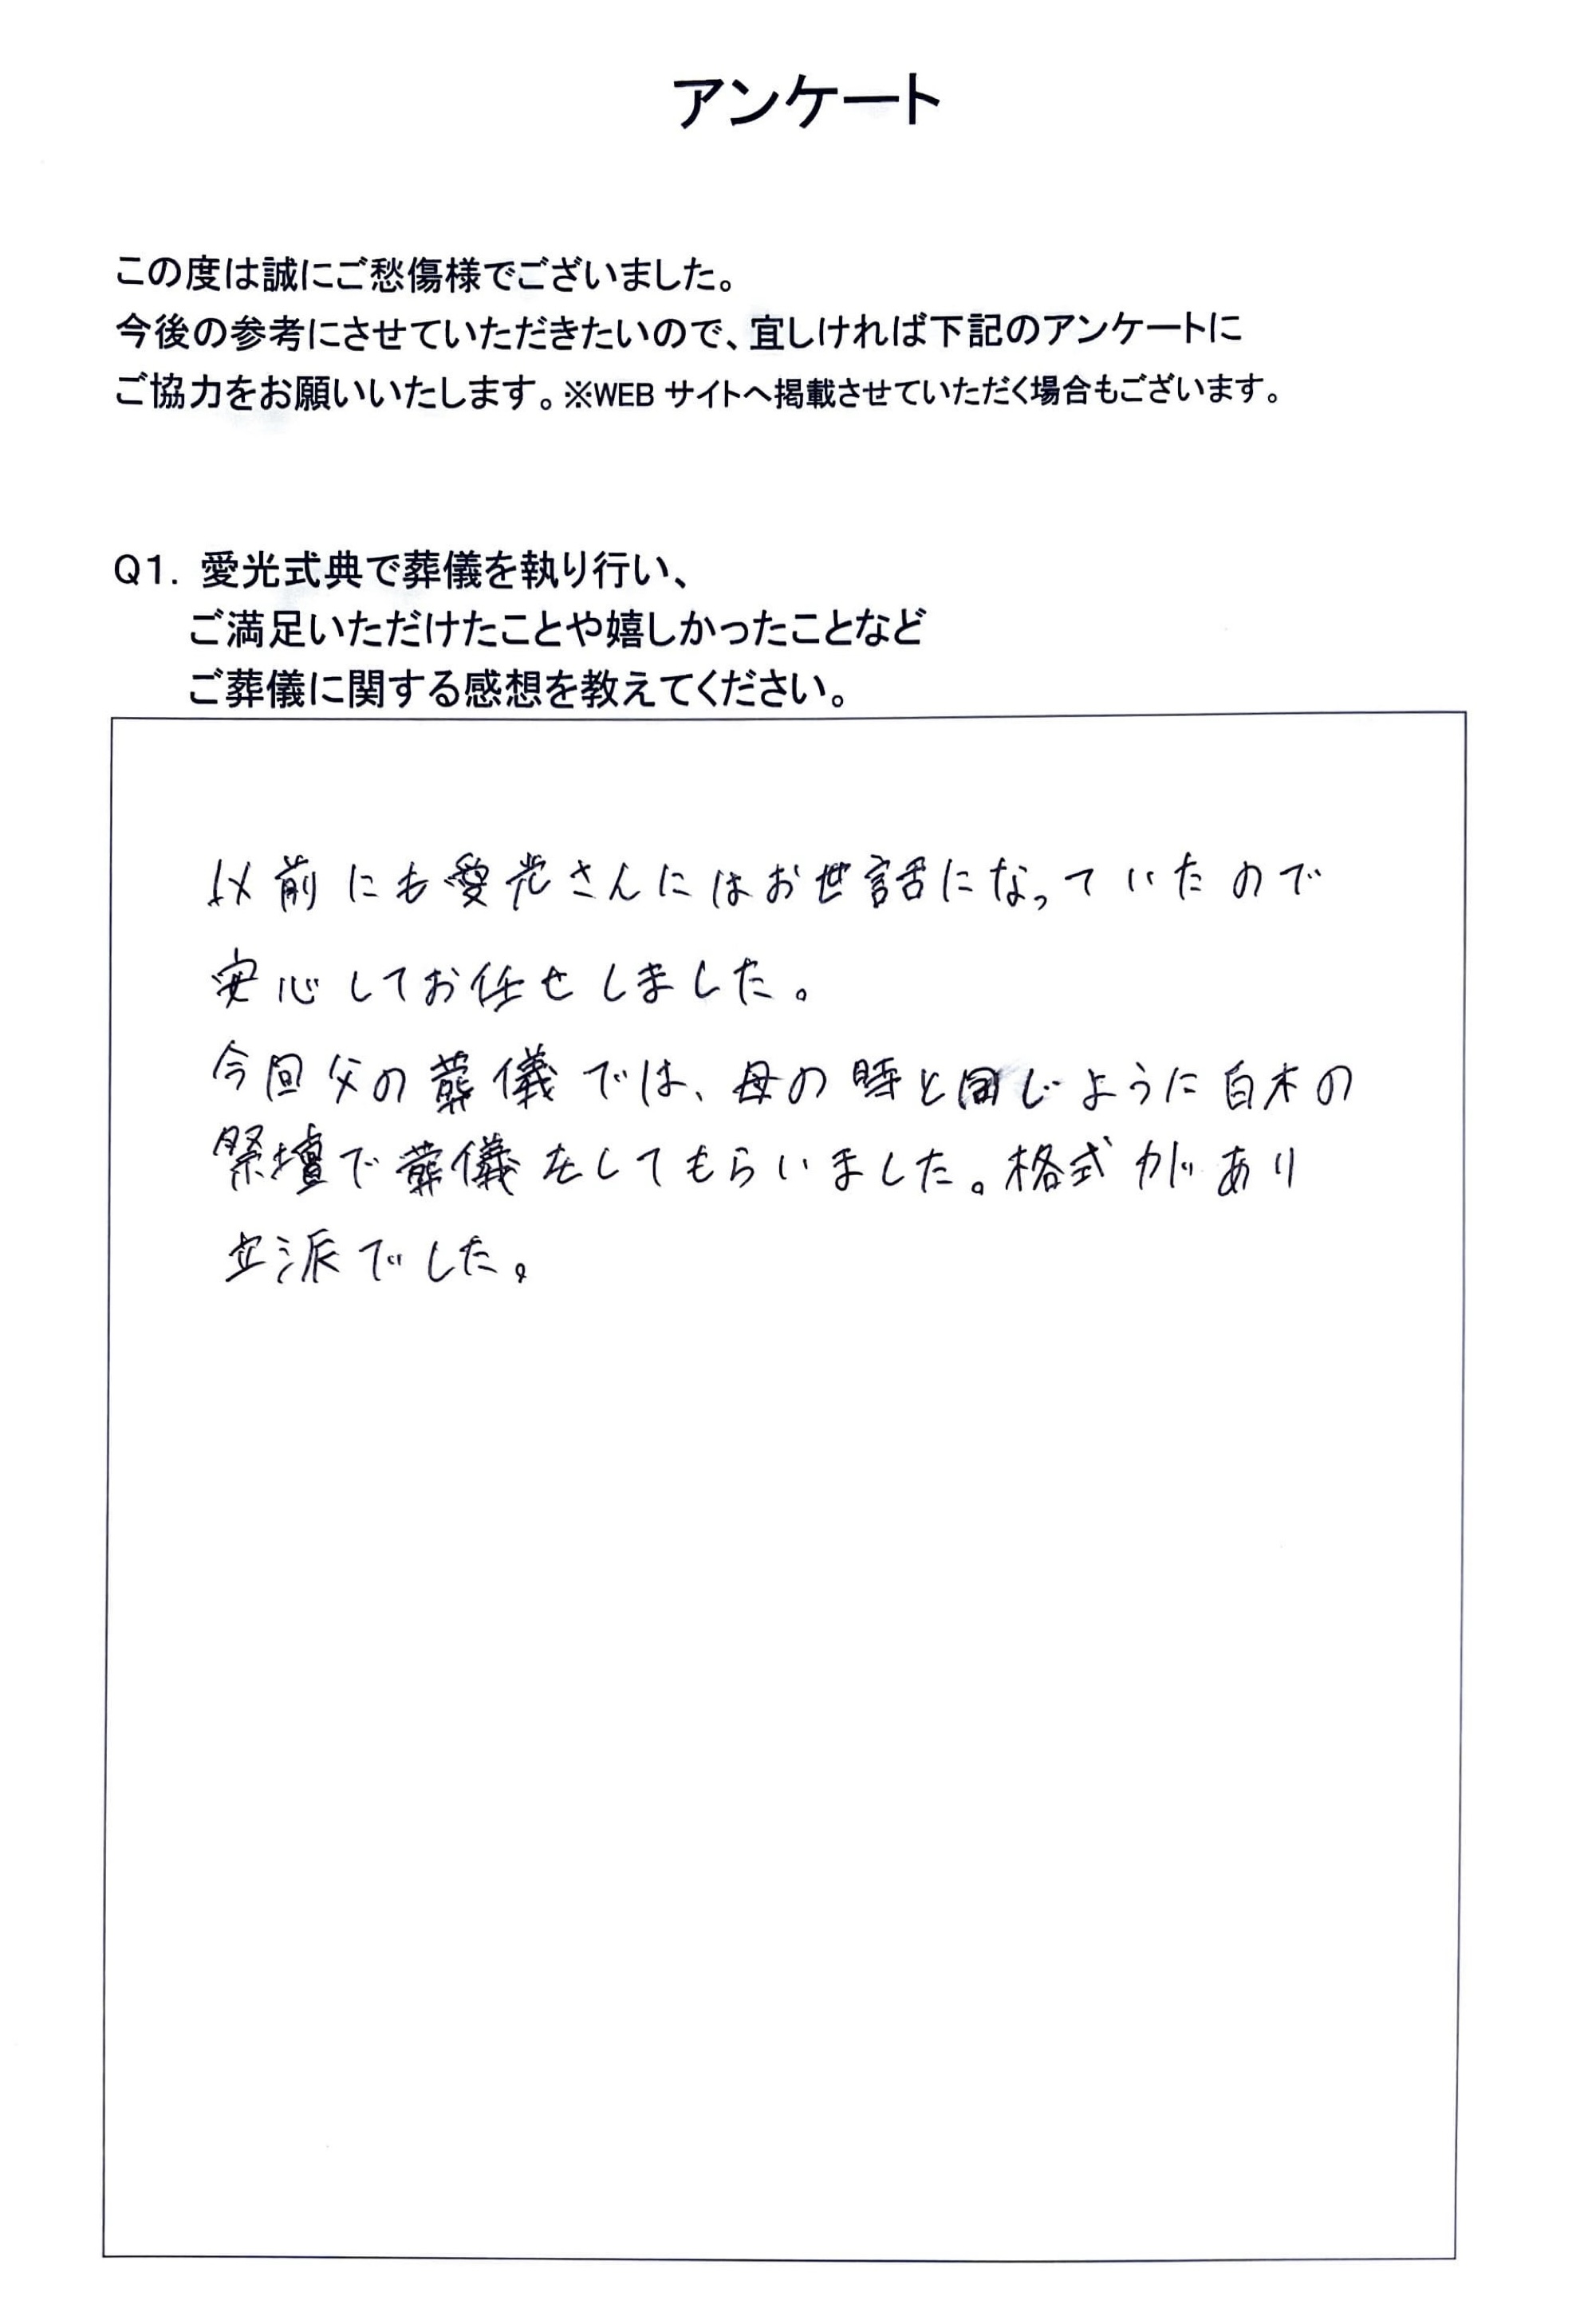 アンケート
この度は誠にご愁傷様でございました。
今後の参考にさせていただきたいので、宜しければ下記のアンケートに
ご協力をお願いいたします。※WEB サイトへ掲載させていただく場合もございます。
Q1. 愛光式典で葬儀を執り行い、
ご満足いただけたことや嬉しかったことなど
ご葬儀に関する感想を教えてください。
以前にも愛光さんにはお世話になっていたので
安心してお任せしました。
今回父の葬儀では、母の時と同じように白木の
祭壇で葬儀をしてもらいました。格式があり
立派でした。